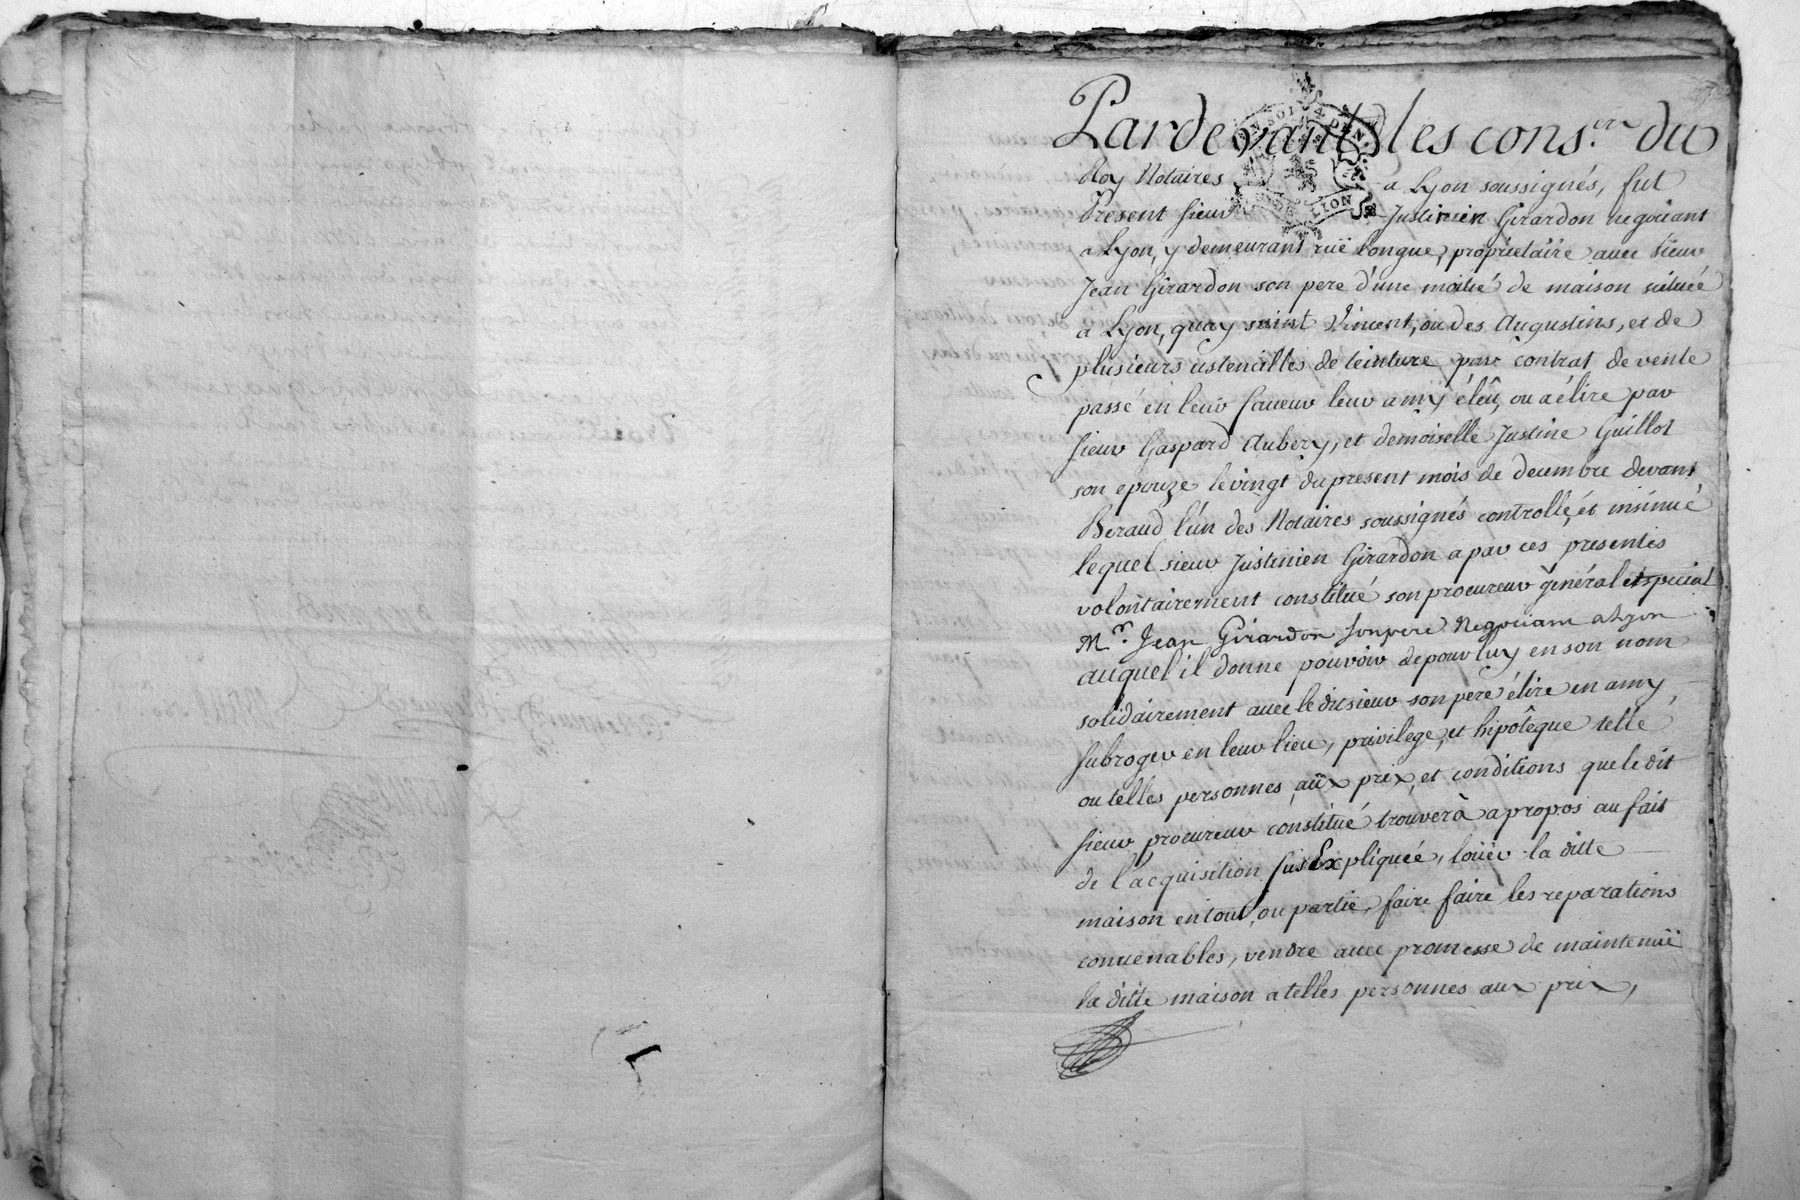 Pardevant les cons.ers du
Roy Notaires a Lyon soussignés, fut
Present sieur Justinien Girardon negotiant
a Lyon, y demeurant ruë longue, propriétaire avec sieur
Jean Girardon son pere d'une moitié de maison scituée
a Lyon, quay saint Vincent, ou des Augustins, et de
plusieurs ustencilles de teinture par contrat de vente
passé en leur faueur leur amy éleû, ou a élire par
sieur Gaspard Aubery, et demoiselle Justine Guillot
son epouze le vingt du present mois de decembre devant
Beraud l'un des Notaires soussignés controllé, et insinué
lequel sieur Justinien Girardon a par ces presentes
volontairement constitué son procureur général et special
Mr. Jean Girardon son pere Negociant a Lyon
auquel il donne pouvoir de pour luy en son nom
solidairement avec le dit sieur son pere élire en amy
subroger en leur lieu, privilege, et hipotêque telle
ou telles personnes aux prix, et conditions que le dit
sieur procureur constitué trouvera a propos au fait
de l'acquisition sus Expliquée, loüer la ditte
maison en tout, ou partie, faire faire les reparations
conuenables, vendre auec promesse de maintenüe
la ditte maison a telles personnes aux prix,